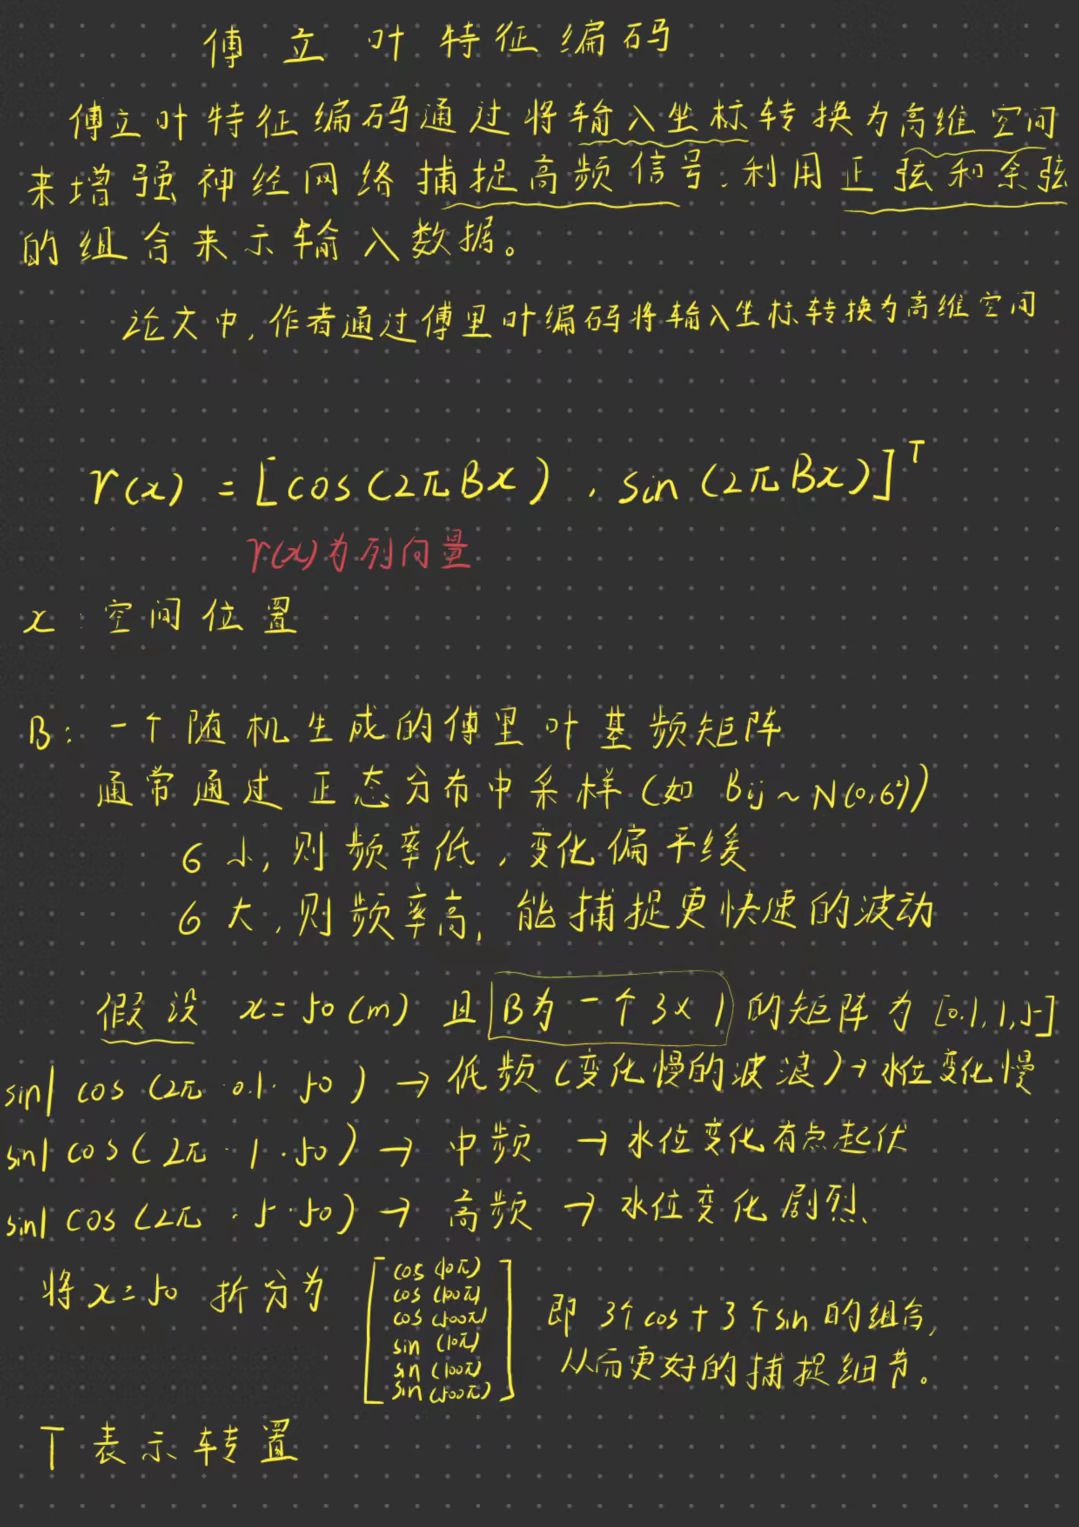 傅立叶特征编码
傅立叶特征编码通过将输入坐标转换为高维空间
来增强神经网络捕捉高频信号,利用正弦和余弦
的组合来示输入数据。
论文中,作者通过傅里叶编码将输入坐标转换为高维空间
r(x) = [cos(2πBx), sin(2πBx)]ᵀ
r(x)为列向量
x:空间位置
B:一个随机生成的傅里叶基频矩阵
通常通过正态分布中采样(如 Bij~N(0,6²))
6小,则频率低,变化偏平缓
6大,则频率高,能捕捉更快速的波动
假设 x=50(m) 且 B为一个3×1 的矩阵为[0.1,1,5]
sin| cos(2π·0.1·50) → 低频(变化慢的波浪)→水位变化慢
sin| cos(2π·1·50) → 中频 → 水位变化有点起伏
sin| cos(2π·5·50) → 高频 → 水位变化剧烈.
将x=50 折分为
cos(10π)
cos(100π)
cos(500π)
sin(10π)
sin(100π)
sin(500π)
即 3个cos+3个sin的组合,
从而更好的捕捉细节。
T 表示转置